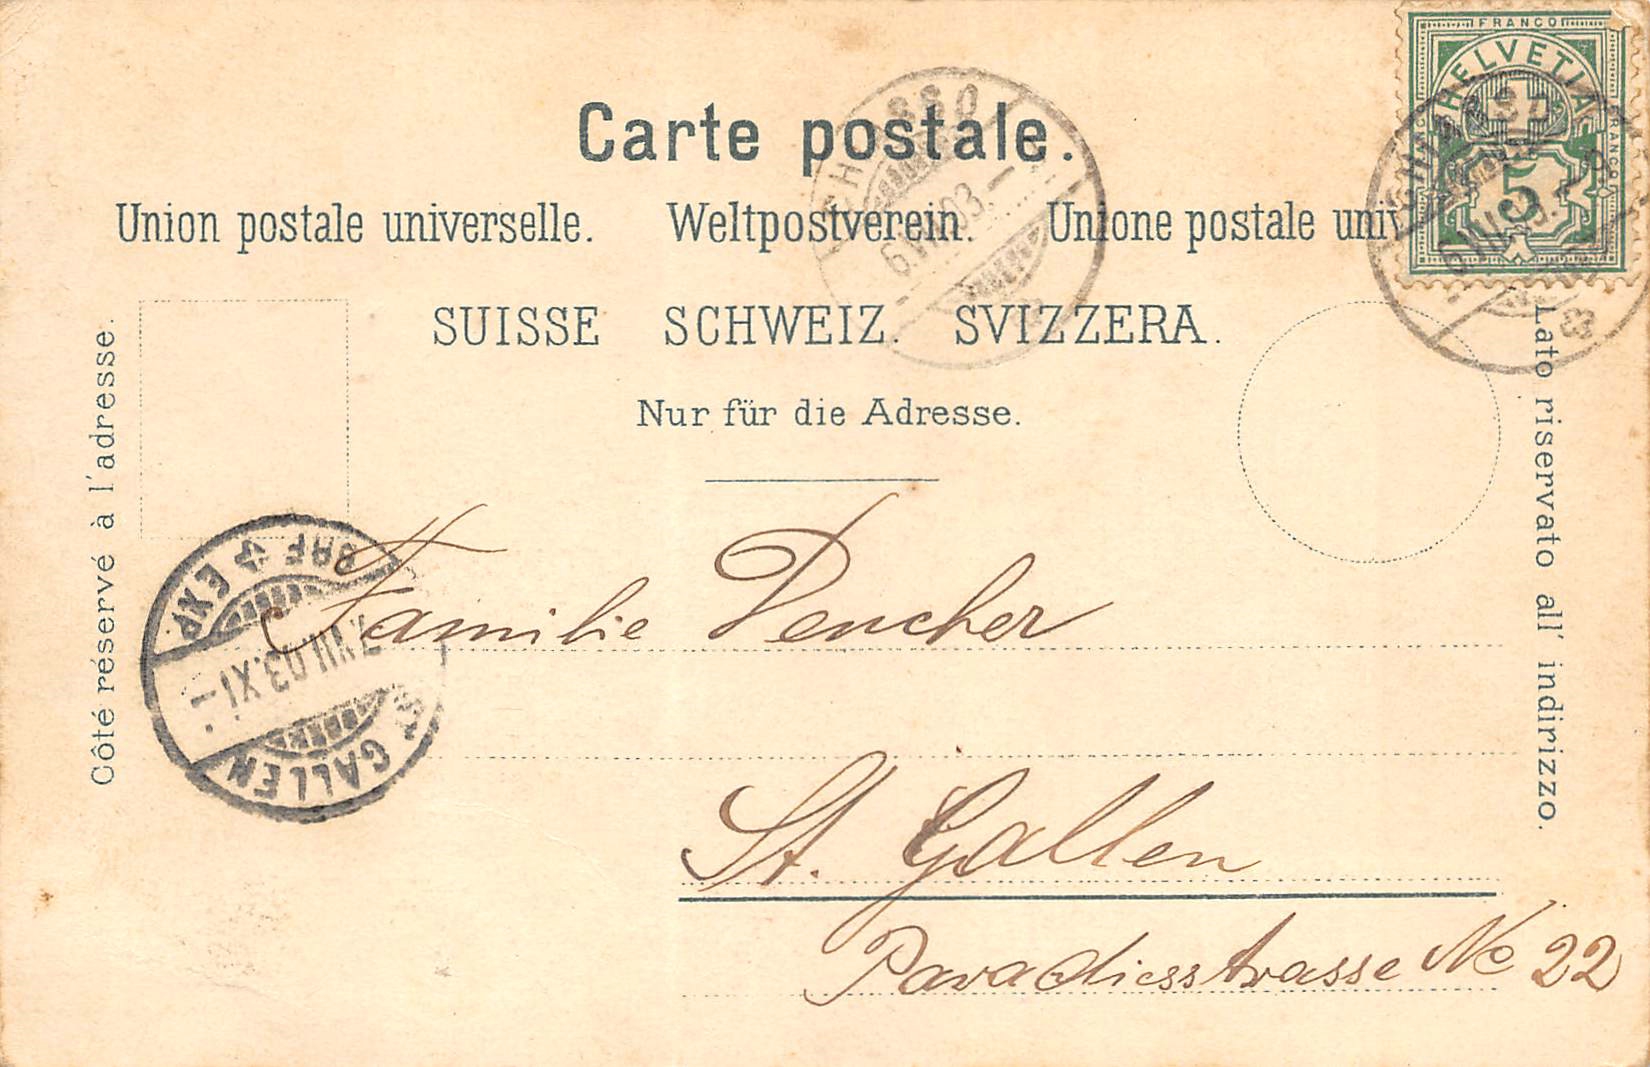 Carte postale.
Union postale universelle. Weltpostverein. Unione postale univ
SUISSE SCHWEIZ. SVIZZERA.
Nur für die Adresse.
Côté réservé à l'adresse.
Lato riservato all' indirizzo.
FRANCO
HELVETIA
FRANCO
5
CHIASSO
6.VII.03.-
CHIASSO
ST. GALLEN
7.VII.03.XI-
Familie Dencher
St. Gallen
Paradiesstrasse No 22